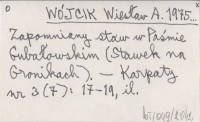 WÓJCIK Wiesław A. 1975...
Zapomniany staw w Paśmie
Gubałowskim (Stawek na
Gronikach). — Karpaty
nr 3 (7): 17-19, il.